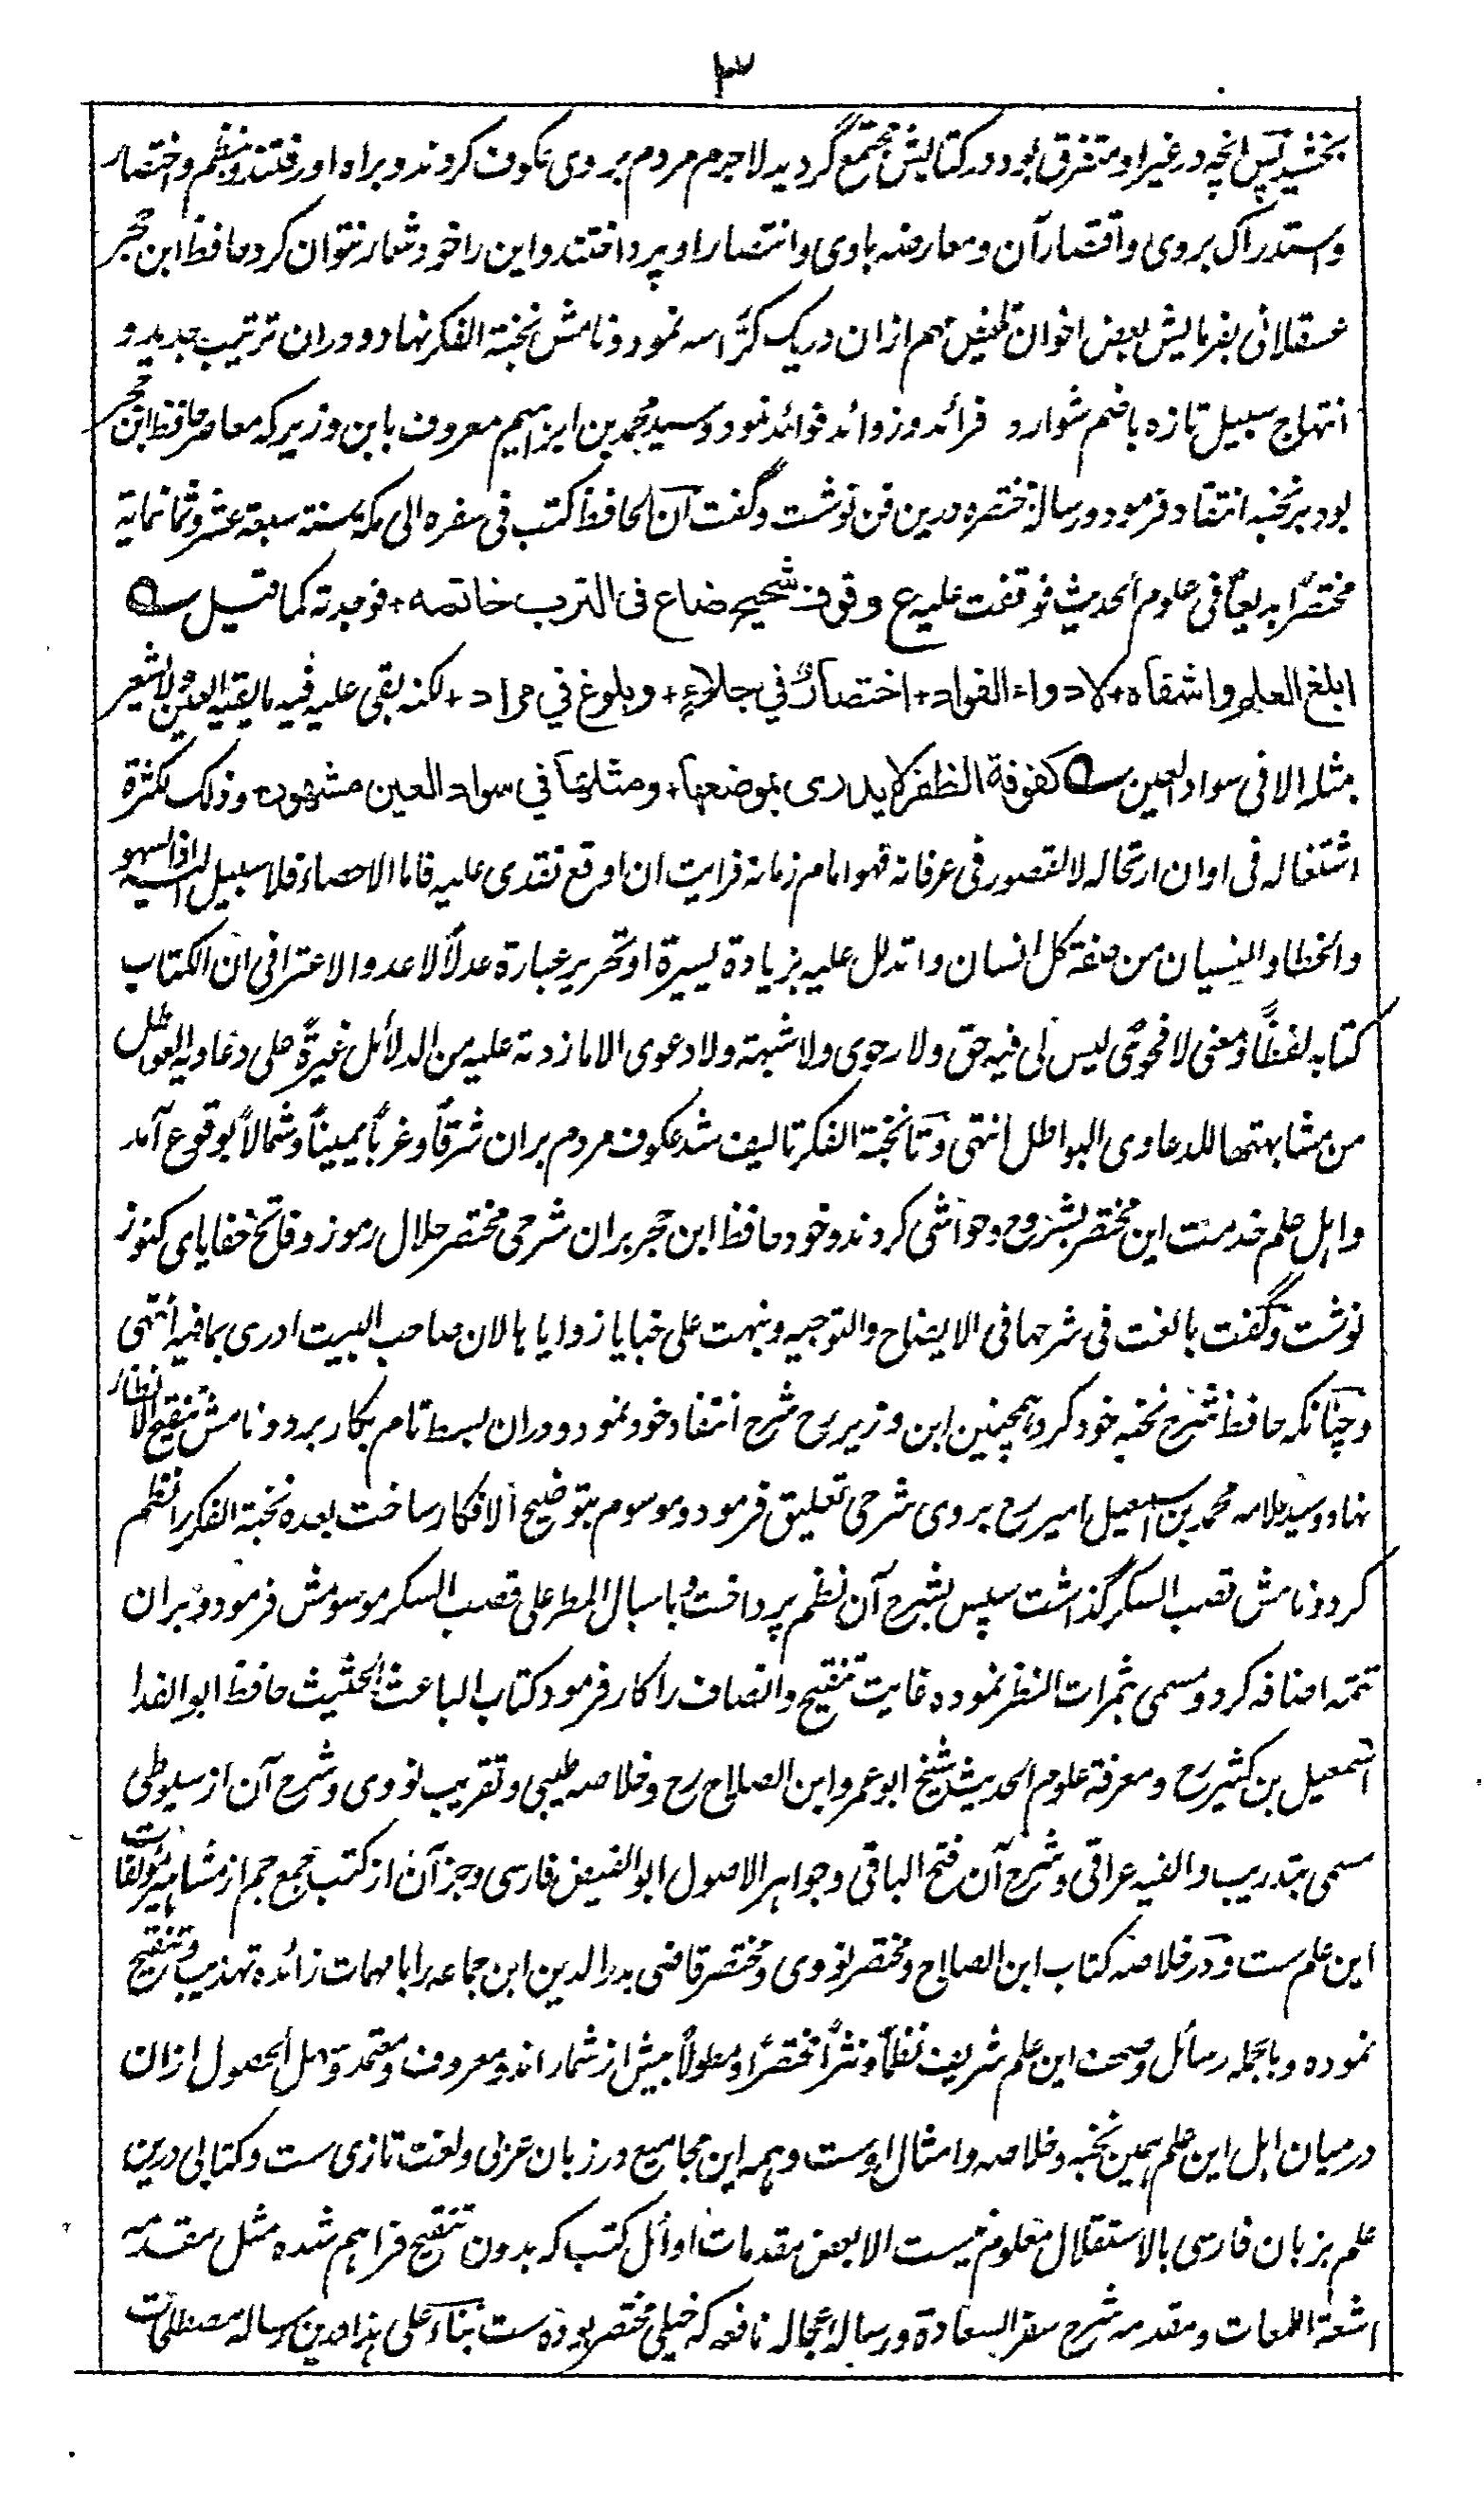 ۳
بخشید پس انچه در غیر او متفرق بود در کتابش مجتمع گردید لاجرم مردم بر وی عکوف کردند و براه او رفتند و بنظم و اختصار
و استدراک بروی و اقتصار آن و معارضه باوی و انتصار او پرداختند و این را خود شمار نتوان کرد حافظ ابن حجر
عسقلانی بفرمایش بعض اخوان تلخیص مهم ازان در یک کراسه نمود و نامش نخبة الفکر نهاد و دران ترتیب جدید و
انتهاج سبیل تازه با ضم شوارد فرائد و زوائد فوائد نمود و سید محمد بن ابراهیم معروف بابن وزیر که معاصر حافظ ابن حجر
بود بر نخبه انتقاد فرمود و رساله مختصره درین فن نوشت و گفت ان الحافظ کتب فی سفره الی مکة سنة سبعة عشر و ثمانمایة
مختصراً بدیعاً فی علوم الحدیث فوقفت علیه ع وقوف شحیح ضاع فی الترب خاتمه + فوجدته کما قیل ؎
ابلغ العلم واشفاه + لادواء الفواد + اختصارٌ في جلاءٍ + وبلوغ في مراد + لکنه بقی علیه فیه ما یقیه العین لا شعیر
مثله الا فی سواد العین ؎ کفوفة الظفر لا یدری بموضعها + ومثلها في سواد العین مشهور + و ذلک لکثرة
اشتغاله فی اوان ارتحاله لا لقصور فی عرفانه فهو امام زمانه فرایت ان اوقع نقدی علیه فاما الاحصاء فلا سبیل الیه اذ السهو
و الخطا و النسیان من صفة کل انسان و اتدلل علیه بزیادة یسیرة او تحریر عبارة عدلاً لا عدوا لاعترافی ان الکتاب
کتابه لفظاً و معنی لا فحوی لیس لی فیه حق ولا رجوی ولا شبهة ولا دعوی الا ما زدته علیه من الدلائل غیرةً علی دعاویه العواطل
من مشابهتها للدعاوی البواطل انتهی و تا نخبة الفکر تالیف شد عکوف مردم بران شرقاً و غرباً یمیناً و شمالاً بوقوع آمد
و اهل علم خدمت این مختصر بشروح و حواشی کردند و خود حافظ ابن حجر بران شرحی مختصر حلال رموز و فاتح خفایای کنوز
نوشت و گفت بالغت فی شرحها فی الایضاح و التوجیه و نبهت علی خبایا زوایاها لان صاحب البیت ادری بما فیه انتهی
و چنانکه حافظ شرح نخبه خود کرد همچنین ابن وزیر رح شرح انتقاد خود نمود و دران بسط تام بکار برد و نامش تنقیح الانظار
نهاد و سید علامه محمد بن اسمعیل امیر رح بروی شرحی تعلیق فرمود و موسوم بتوضیح الافکار ساخت بعده نخبة الفکر را نظم
کرد و نامش قصب السکر گذاشت سپس بشرح آن نظم پرداخت و باسبال المطر علی قصب السکر موسومش فرمود و بران
تتمه اضافه کرد و مسمی بثمرات النظر نموده غایت تنقیح و انصاف را کار فرمود کتاب الباعث الحثیث حافظ ابوالفدا
اسمعیل بن کثیر رح و معرفة علوم الحدیث شیخ ابو عمرو ابن الصلاح رح و خلاصه طیبی و تقریب نووی و شرح آن از سیوطی
مسمی بتدریب و الفیه عراقی و شرح آن فتح الباقی و جواهر الاصول ابو الفیض فارسی و جز آن از کتب جمع جم از مشاهیر مؤلفات
این علم ست و در خلاصه کتاب ابن الصلاح و مختصر نووی و مختصر قاضی بدرالدین ابن جماعه را با مهمات زائده تهذیب و تنقیح
نموده و بالجمله رسائل و صحف این علم شریف نظماً و نثراً مختصراً و مطولاً بیش از شمار اند و معروف و معتمد و سهل الحصول ازان
درمیان اهل این علم همین نخبه و خلاصه و امثال اوست و همه این مجامیع در زبان عربی و لغت تازی ست و کتابی درین
علم بزبان فارسی بالاستقلال معلوم نیست الا بعض مقدمات اوائل کتب که بدون تنقیح فراهم شده مثل مقدمه
اشعة اللمعات و مقدمه شرح سفر السعادة و رساله عجاله نافعه که خیلی مختصر بوده ست بناءً علی هذا درین رساله مصطلحات